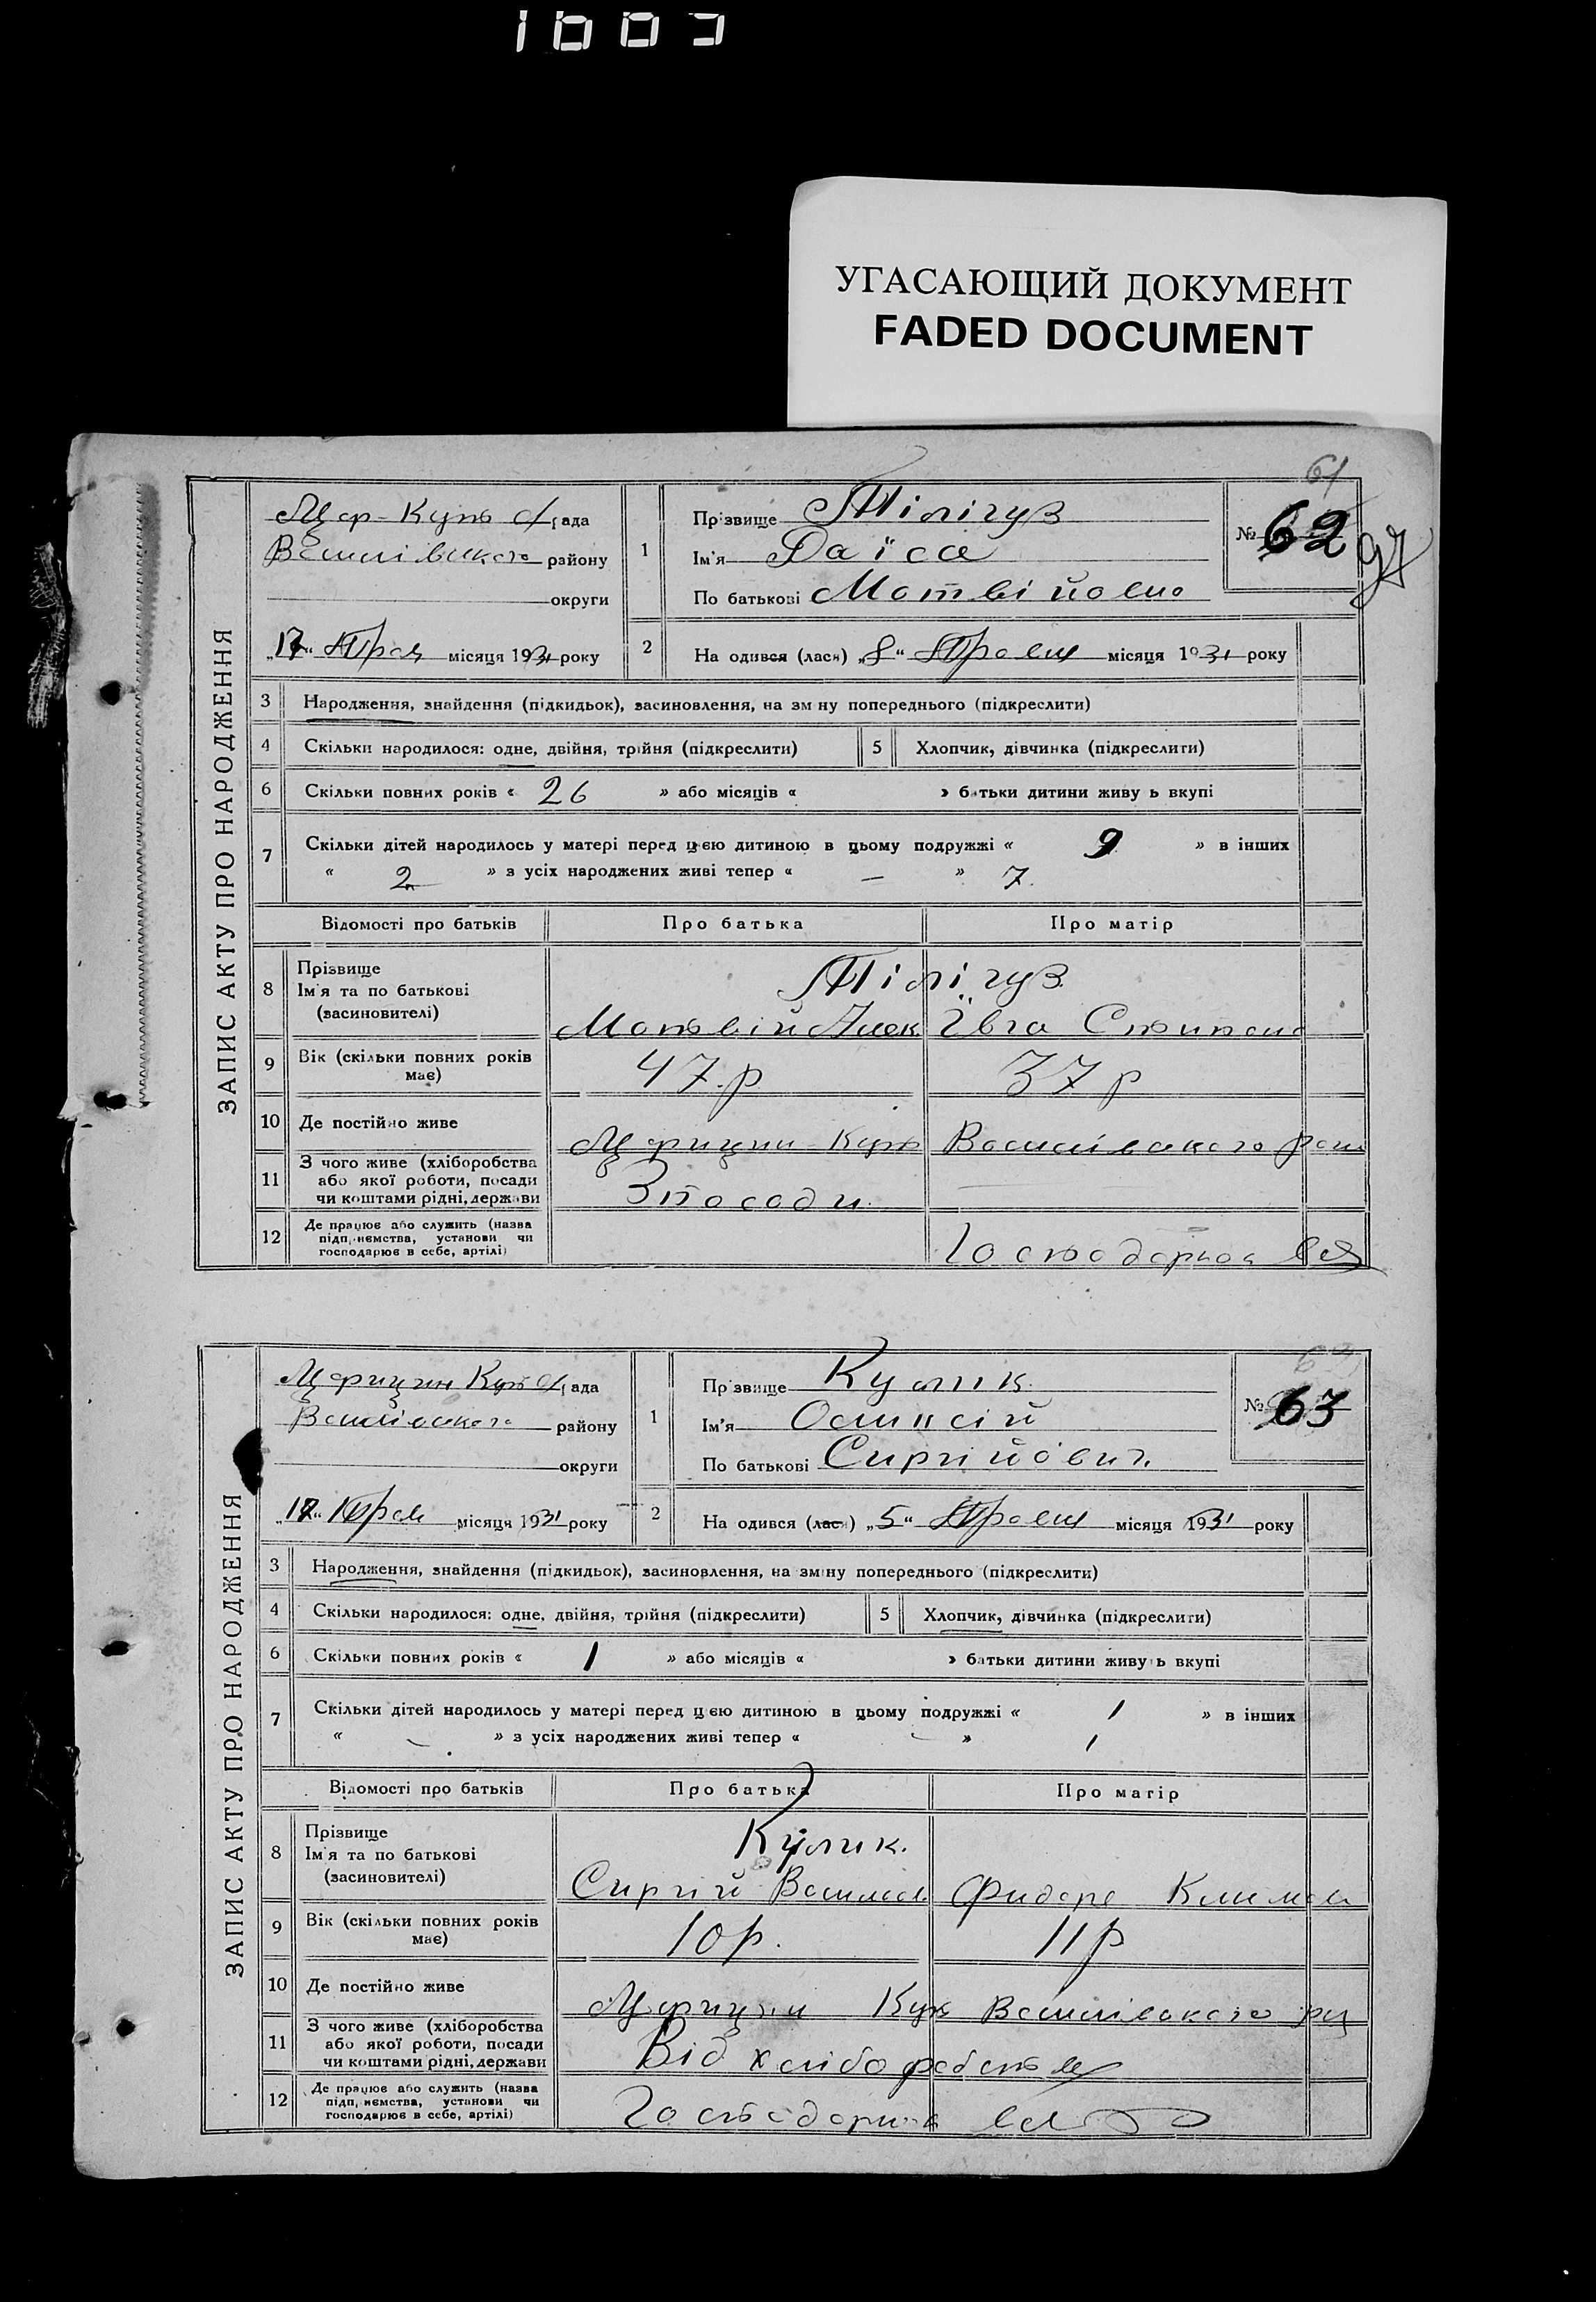 УГАСАЮЩИЙ ДОКУМЕНТ
FADED DOCUMENT
61
ЗАПИС АКТУ ПРО НАРОДЖЕННЯ
Цар-Кут С/рада
Василівського району
округи
„17“ Трав місяця 1931 року
1
Прізвище Пілігуз
Ім'я Раїса
По батькові Матвійовна
№ 62
97
2 На одився (лася) „8“ Травня місяця 1931 року
3 Народження, знайдення (підкидьок), засиновлення, на зміну попереднього (підкреслити)
4 Скільки народилося: одне, двійня, трійня (підкреслити) 5 Хлопчик, дівчинка (підкреслити)
6 Скільки повних років « 26 » або місяців « » батьки дитини живуть вкупі
7 Скільки дітей народилось у матері перед цією дитиною в цьому подружжі « 9 » в інших
« 2 » з усіх народжених живі тепер « — » 7.
Відомості про батьків Про батька Про матір
8 Прізвище
Ім'я та по батькові
(засиновителі)
Пілігуз
Матвій Алек Ївга Степано
9 Вік (скільки повних років має) 47.р 37 р
10 Де постійно живе Царицин-Кут Василівського рай
11 З чого живе (хліборобства
або якої роботи, посади
чи коштами рідні, держави
З посади
12 Де працює або служить (назва
підприємства, установи чи
господарює в себе, артілі)
Господарює
ЗАПИС АКТУ ПРО НАРОДЖЕННЯ
Царицин Кут С/рада
Василівського району
округи
місяця 1931 року
1
Прізвище Кулик
Ім'я
По батькові Сиргійович
№ 63
2 На одився (лася) „5“ Травня місяця 1931 року
3 Народження, знайдення (підкидьок), засиновлення, на зміну попереднього (підкреслити)
4 Скільки народилося: одне, двійня, трійня (підкреслити) 5 Хлопчик, дівчинка (підкреслити)
6 Скільки повних років « 1 » або місяців « » батьки дитини живуть вкупі
7 Скільки дітей народилось у матері перед цією дитиною в цьому подружжі « 1 » в інших
« — » з усіх народжених живі тепер « — » 1
Відомості про батьків Про батька Про матір
8 Прізвище
Ім'я та по батькові
(засиновителі)
Кулик.
Сиргій Василев Фидора Климов
9 Вік (скільки повних років має) 10р. 11р
10 Де постійно живе Царицин Кут Василівського
11 З чого живе (хліборобства
або якої роботи, посади
чи коштами рідні, держави
Від хліборобства
12 Де працює або служить (назва
підприємства, установи чи
господарює в себе, артілі)
Господарює